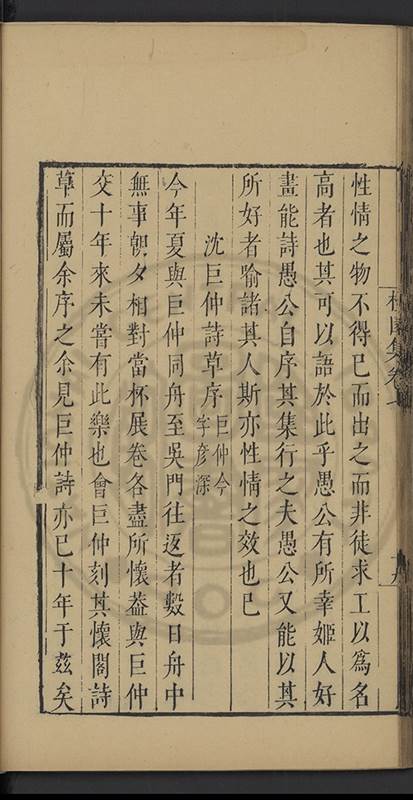 性情之物不得已而出之而非徒求工以爲名
高者也其可以語於此乎愚公有所幸姬人好
畫能詩愚公自序其集行之夫愚公又能以其
所好者喻諸其人斯亦性情之效也已
沈巨仲詩草序 巨仲今字彥深
今年夏與巨仲同舟至吳門往返者數日舟中
無事朝夕相對當杯展卷各盡所懷葢與巨仲
交十年來未嘗有此樂也會巨仲刻其懷閣詩
草而屬余序之余見巨仲詩亦已十年于茲矣